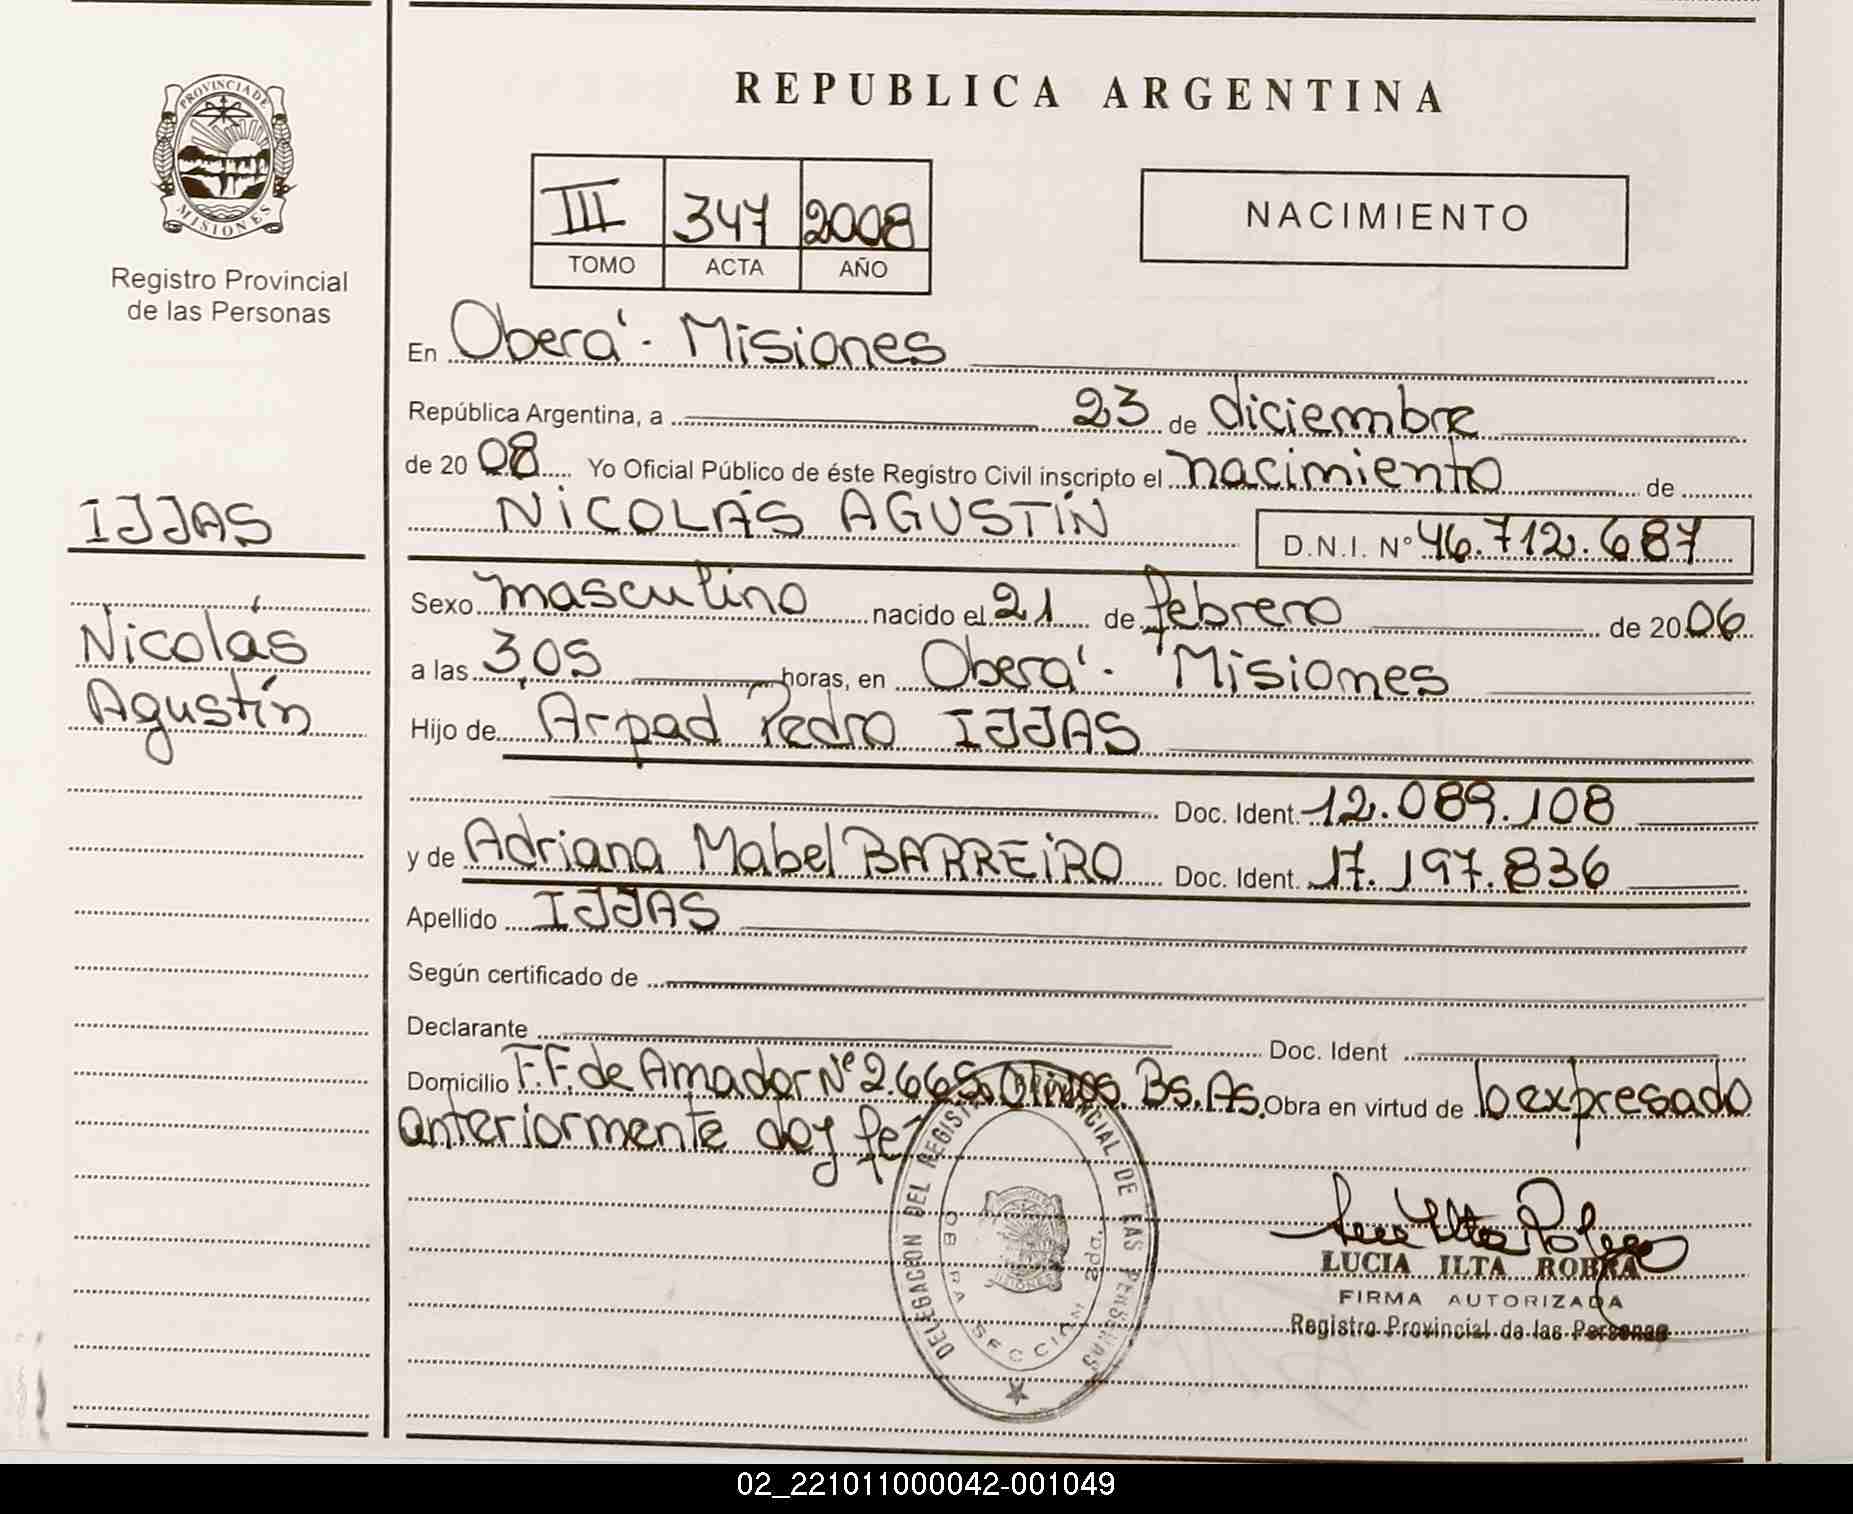 REPUBLICA ARGENTINA
PROVINCIA DE MISIONES
Registro Provincial
de las Personas
III 347 2008
TOMO ACTA AÑO
NACIMIENTO
En Oberá - Misiones
República Argentina, a 23 de diciembre
de 2008 Yo Oficial Público de éste Registro Civil inscripto el nacimiento de
IJJAS
NICOLÁS AGUSTÍN D.N.I. Nº 46.712.687
Nicolás
Agustín
Sexo masculino nacido el 21 de febrero de 2006
a las 3,05 horas, en Oberá - Misiones
Hijo de Arpad Pedro IJJAS
Doc. Ident. 12.089.108
y de Adriana Mabel BARREIRO Doc. Ident. 17.197.836
Apellido IJJAS
Según certificado de
Declarante Doc. Ident
Domicilio F.F. de Amador Nº 2.665. Olivos. Bs. As. Obra en virtud de lo expresado
anteriormente doy fé
DELEGACION DEL REGISTRO PROVINCIAL DE LAS PERSONAS
OBERA SECCION 2da.
PROVINCIA DE MISIONES
LUCIA ILTA ROBRA
FIRMA AUTORIZADA
Registro Provincial de las Personas
02_221011000042-001049